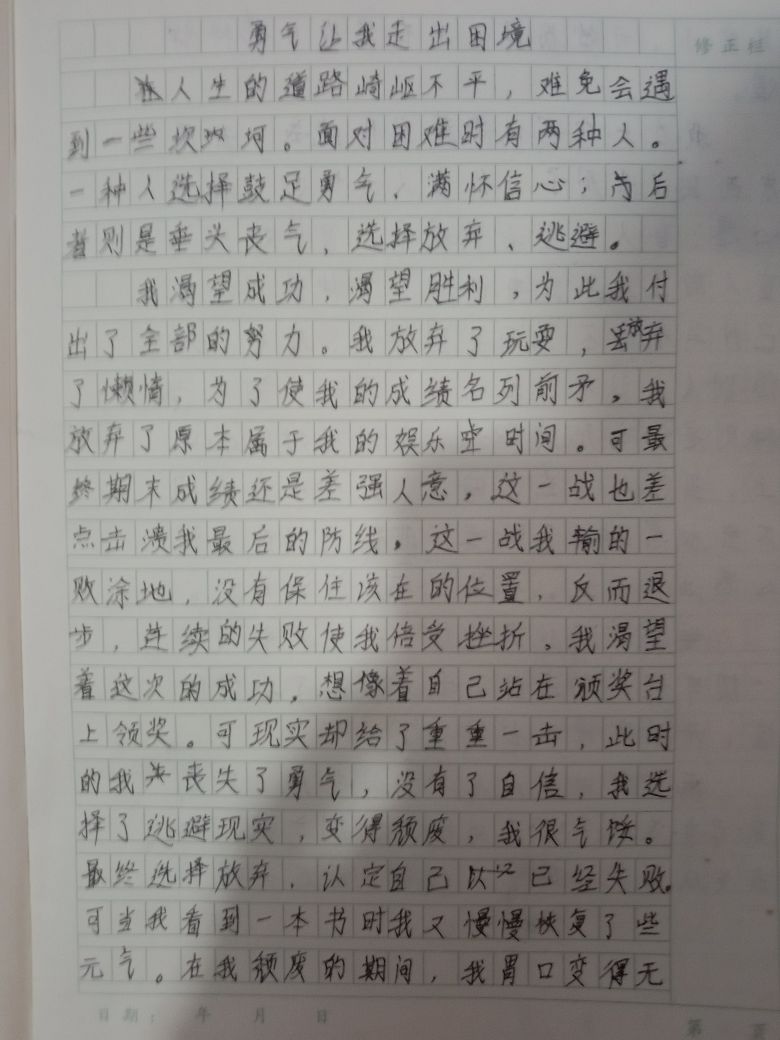 勇气让我走出困境
修正栏
人生的道路崎岖不平，难免会遇
到一些坎坷。面对困难时有两种人。
一种人选择鼓足勇气、满怀信心；而后
者则是垂头丧气，选择放弃、逃避。
我渴望成功，渴望胜利，为此我付
出了全部的努力。我放弃了玩耍，丢放弃
了懒惰，为了使我的成绩名列前矛。我
放弃了原本属于我的娱乐时间。可最
终期末成绩还是差强人意，这一战也差
点击溃我最后的防线。这一战我输的一
败涂地，没有保住该在的位置，反而退
步，连续的失败使我倍受挫折。我渴望
着这次的成功，想像着自己站在颁奖台
上领奖。可现实却给了重重一击，此时
的我丧失了勇气，没有了自信，我选
择了逃避现实，变得颓废，我很气馁。
最终选择放弃，认定自己已经失败。
可当我看到一本书时我又慢慢恢复了些
元气。在我颓废的期间，我胃口变得无
日期： 年 月 日
第 页